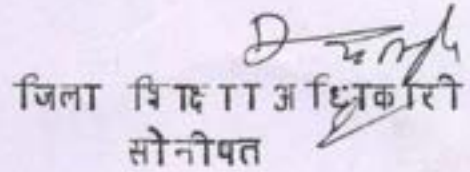 जिला शिक्षा अधिकारी
सोनीपत